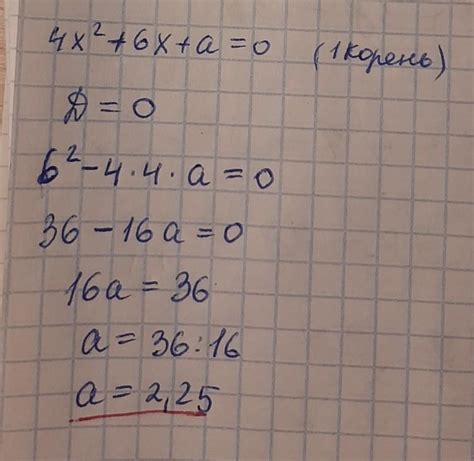 4x²+6x+a=0 (1корень)
Д=0
6²-4·4·a=0
36-16a=0
16a=36
a=36:16
a=2,25